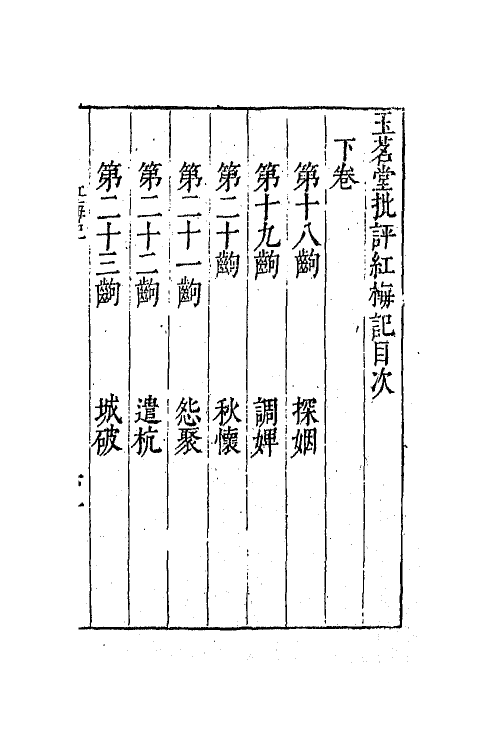 玉茗堂批評紅梅記目次
下卷
第十八齣 探姻
第十九齣 調婢
第二十齣 秋懷
第二十一齣 怨聚
第二十二齣 遣杭
第二十三齣 城破